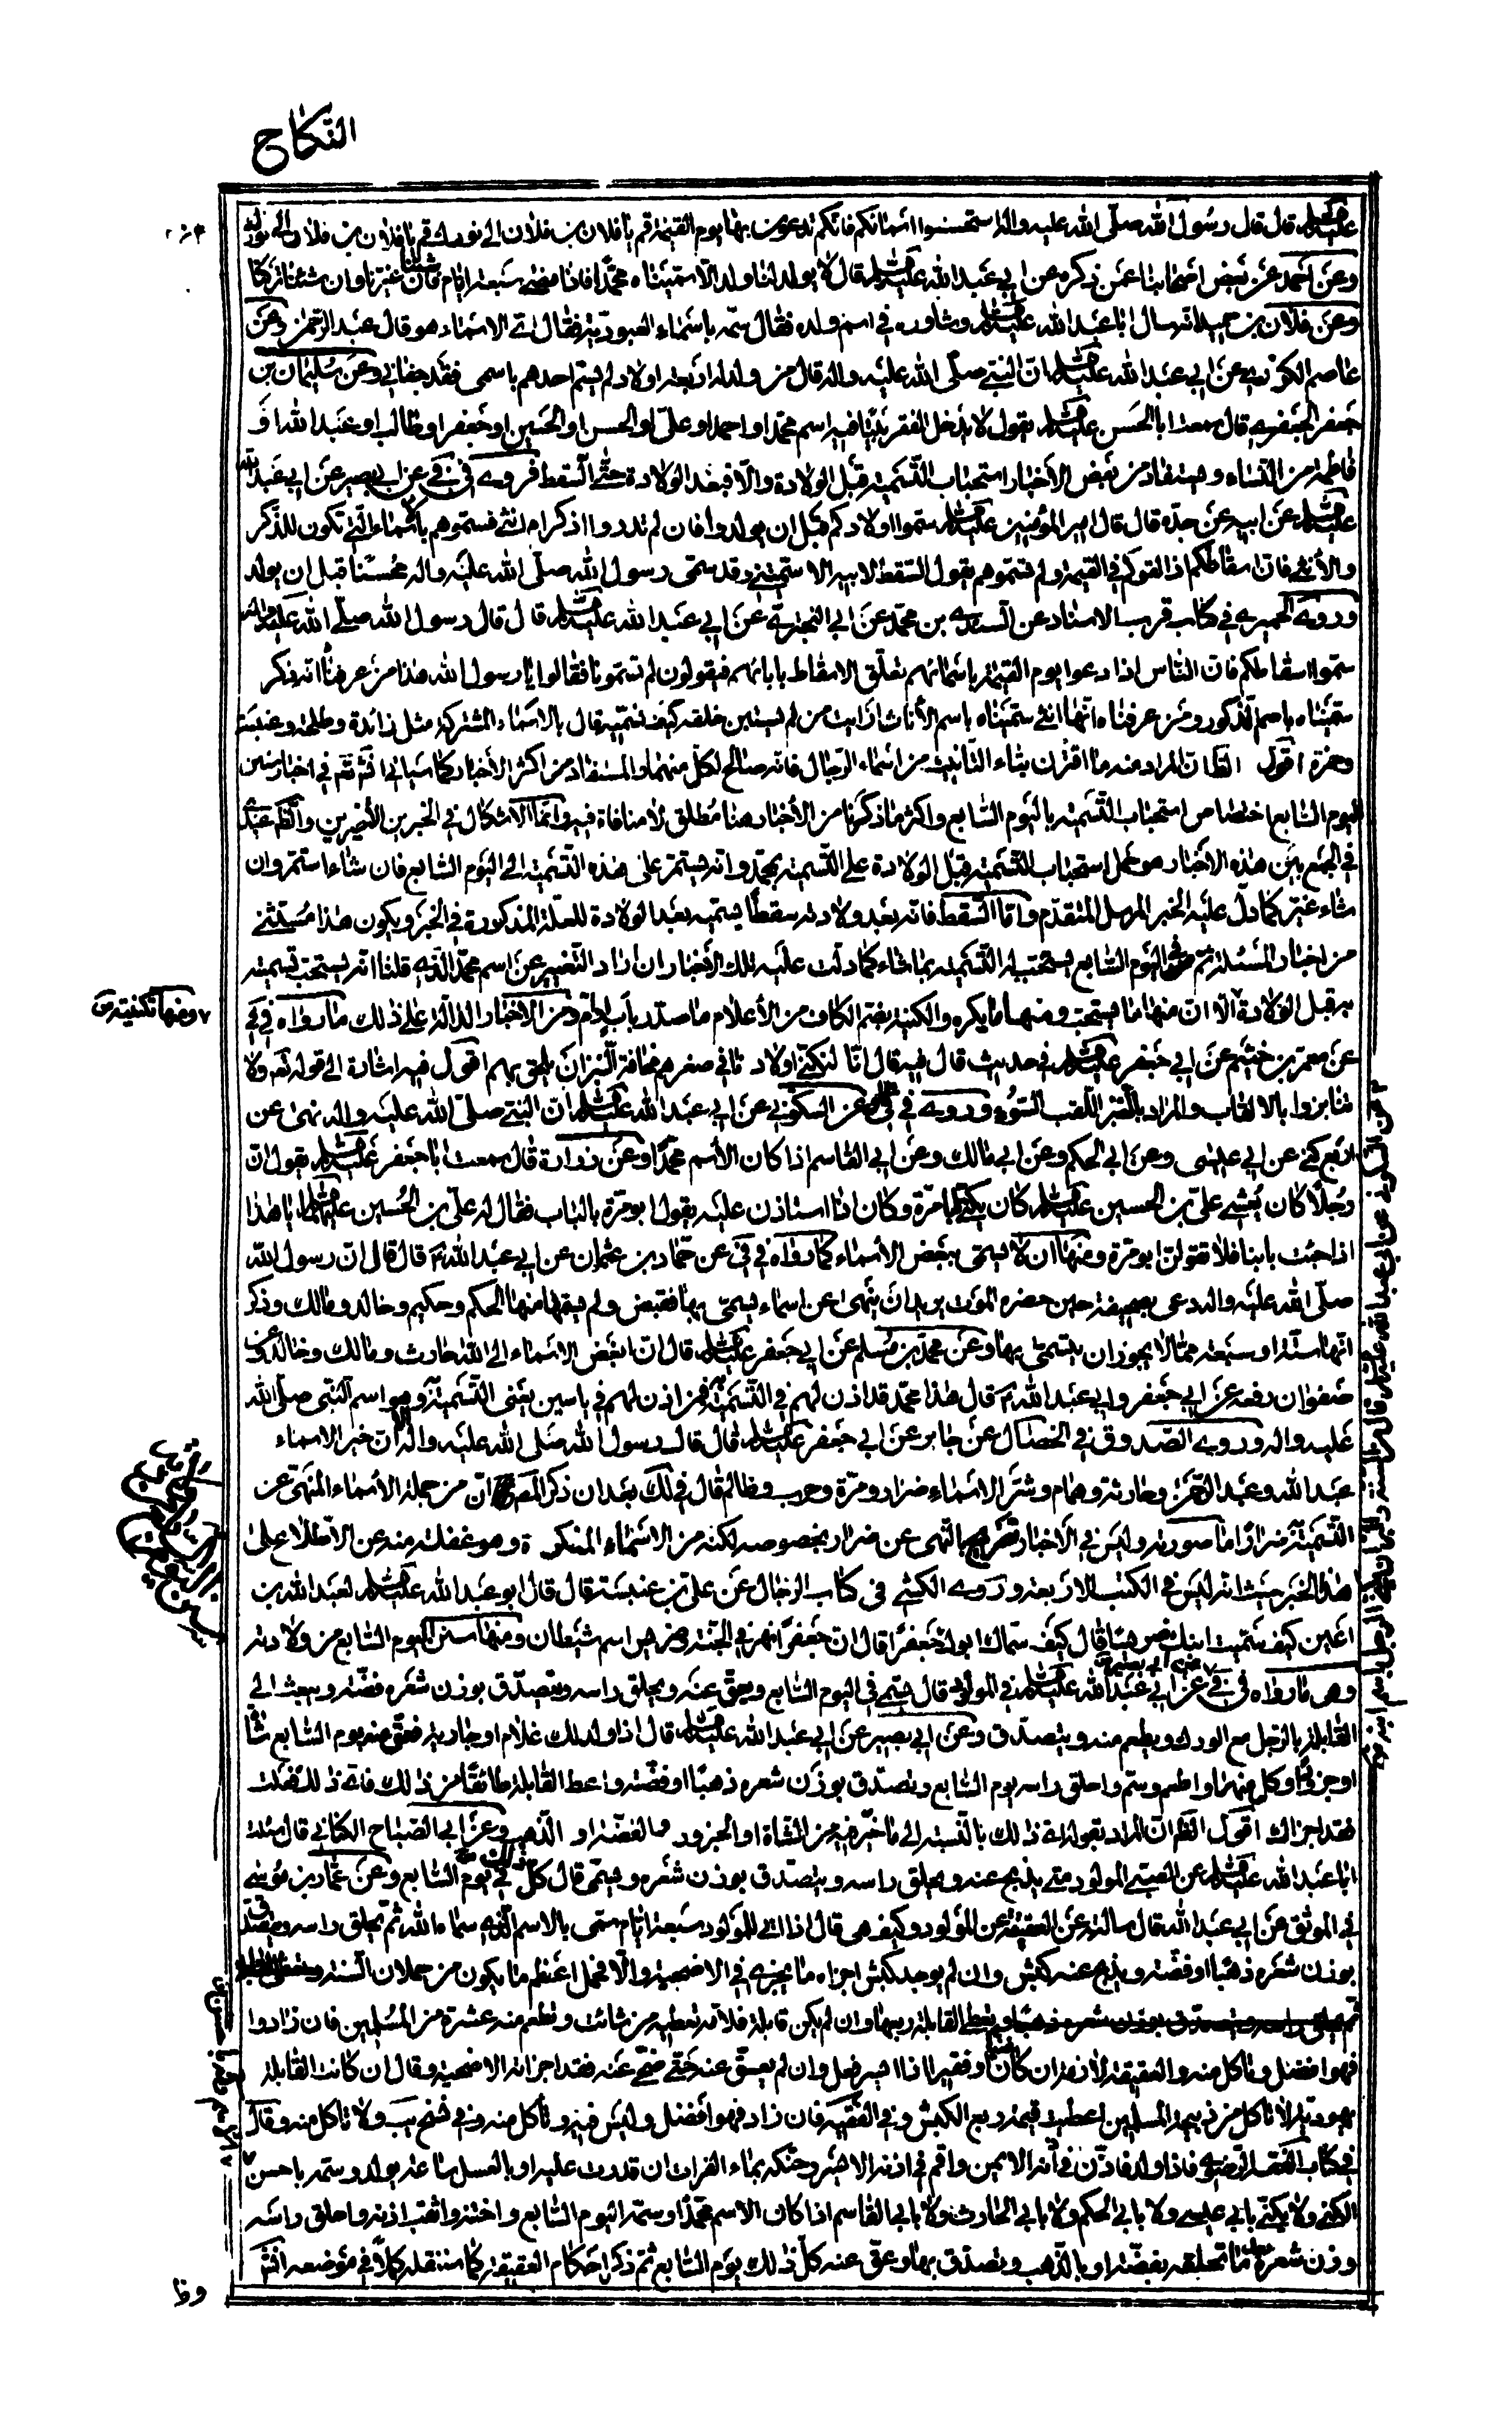 النكاح
عليه السلام قال قال رسول الله صلّى الله عليه واله استحسنوا اسمائكم فانكم تدعون بها يوم القيمة قم يا فلان بن فلان الى نورك قم يا فلان بن فلان لا نور لك
وعن احمد عن بعض اصحابنا عمن ذكره عن ابي عبد الله عليه السلام قال لا يولد لنا ولد الا سميناه محمدا فاذا مضى سبعة ايام فان شئنا غيرنا وان شئنا تركنا
وعن فلان بن حميد انه سال ابا عبد الله عليه السلام وشاوره في اسم ولده فقال سمه باسماء العبودية فقال اي الاسماء هو قال عبد الرحمن وعن
عاصم الكوزي عن ابي عبد الله عليه السلام ان النبي صلّى الله عليه واله قال من ولد له اربعة اولاد لم يسم احدهم باسمى فقد جفاني وعن سليمان بن
جعفر الجعفري قال سمعت ابا الحسن عليه السلام يقول لا يدخل الفقر بيتا فيه اسم محمد او احمد او على او الحسن او الحسين او جعفر او طالب او عبد الله او
فاطمة من النساء ويستفاد من بعض الاخبار استحباب التسمية قبل الولادة والا فبعد الولادة حتى السقط فروى في في عن ابي بصير عن ابي عبد الله
عليه السلام عن ابيه عن جده قال قال امير المؤمنين عليه السلام سموا اولادكم قبل ان يولدوا فان لم تدروا اذكر ام انثى فسموهم بالاسماء التي تكون للذكر
والانثى فان اسقاطكم اذا لقوكم في القيمة ولم تسموهم يقول السقط لابيه الا سميتني وقد سمى رسول الله صلى الله عليه واله محسنا قبل ان يولد
وروى الحميري في كتاب قرب الاسناد عن السندي بن محمد عن ابي البختري عن ابي عبد الله عليه السلام قال قال رسول الله صلى الله عليه واله
سموا اسقاطكم فان الناس اذا دعوا يوم القيمة باسمائهم تعلق الاسقاط بابائهم فيقولون لم تسمونا فقالوا يا رسول الله هذا من عرفنا انه ذكر
سميناه باسم الذكور ومن عرفناه انها انثى سميناه باسم الاناث ارايت من لم يستبن خلقه كيف نسميه قال بالاسماء المشتركة مثل زائدة وطلحة وعنبسة
وحمزة اقول الظ ان المراد منه ما اقترن بتاء التانيث من اسماء الرجال فانه صالح لكل منهما والمستفاد من اكثر الاخبار كما سياتي انش تع في اخبار سنن
اليوم السابع اختصاص استحباب التسمية باليوم السابع واكثر ما ذكرنا من الاخبار هنا مطلق لا منافاة فيه وانما الاشكال في الخبرين الاخيرين والظ عندى
في الجمع بين هذه الاخبار هو حمل استحباب التسمية قبل الولادة على التسمية بمحمد وانه يستمر على هذه التسمية الى اليوم السابع فان شاء استمر وان
شاء غير كما دل عليه الخبر المرسل المتقدم واما السقط فانه بعد ولادته سقطا يسميه بعد الولادة للعلة المذكورة في الخبر ويكون هذا مستثنى
من اخبار المسئلة ثم في اليوم السابع يستحب له التسمية بما شاء كما دلت عليه تلك الاخبار ان اراد التغيير عن اسم محمد الذي قلنا انه يستحب تسميته
به قبل الولادة الا ان منها ما يستحب ومنها ما يكره والكنية بضم الكاف من الاعلام ما صدر باب او ام ومن الاخبار الدالة على ذلك ما رواه في في
ومنها تكنيته
عن معمر بن خثيم عن ابي جعفر عليه السلام في حديث قال فيه قال انا لنكني اولادنا في صغرهم مخافة النبز ان يلحق بهم اقول فيه اشارة الى قوله تع ولا
تنابزوا بالالقاب والمراد بالنبز اللقب السوء وروى في في عن السكوني عن ابي عبد الله عليه السلام ان النبي صلى الله عليه واله نهى عن
اربع كنى عن ابي عيسى وعن ابي الحكم وعن ابي مالك وعن ابي القاسم اذا كان الاسم محمدا وعن زرارة قال سمعت ابا جعفر عليه السلام يقول ان
رجلا كان يغشى على بن الحسين عليه السلام كان يكنى بابى مرة وكان اذا استاذن عليه يقول ابو مرة بالباب فقال له على بن الحسين عليهما السلام يا هذا
اذا جئت بابنا فلا تقولن ابو مرة ومنها ان لا يسمى ببعض الاسماء كما رواه في في عن حماد بن عثمان عن ابي عبد الله ع قال قال ان رسول الله
صلى الله عليه واله دعى بصحيفة حين حضره الموت يريد ان ينهى عن اسماء يسمى بها فقبض ولم يسمها منها الحكم وحكيم وخالد ومالك وذكر
انها ستة او سبعة مما لا يجوز ان يتسمى بها وعن محمد بن مسلم عن ابي جعفر عليه السلام قال ان ابغض الاسماء الى الله حارث ومالك وخالد وعن
صفوان رفعه عن ابي جعفر وابي عبد الله ع قال هذا محمد قد اذن لهم في التسمية به فمن اذن لهم في ياسين يعنى التسمية وهو اسم النبي صلى الله
عليه واله وروى الصدوق في الخصال عن جابر عن ابي جعفر عليه السلام قال قال رسول الله صلى الله عليه واله الا ان خير الاسماء
عبد الله وعبد الرحمن وحارثة وهمام وشر الاسماء ضرار ومرة وحرب وظالم قال في لك بعد ان ذكر المص ان من جملة الاسماء المنهى عن
التسمية ضرارا ما صورته وليس في الاخبار تصريح بالنهى عن ضرار بخصوصه لكنه من الاسماء المنكرة وهو غفلة منه عن الاطلاع على
هذا الخبر حيث انه ليس في الكتب الاربعة وروى الكشى في كتاب الرجال عن على بن عنبسة قال قال ابو عبد الله عليه السلام لعبد الله بن
اعين كيف سميت ابنك ضريسا قال كيف سماك ابوك جعفرا قال ان جعفرا نهر في الجنة وضريس اسم شيطان ومنها سنن اليوم السابع من ولادته
وهى ما رواه في في عن ابي بصير عن ابي عبد الله عليه السلام في المولود قال يسمى في اليوم السابع ويعق عنه ويحلق راسه ويتصدق بوزن شعره فضة ويبعث الى
القابلة بالرجل مع الورك ويطعم منه ويتصدق وعن ابي بصير عن ابي عبد الله عليه السلام قال اذا ولد لك غلام او جارية فعق عنه يوم السابع شاة
او جزورا وكل منهما واطعم وسم واحلق راسه يوم السابع وتصدق بوزن شعره ذهبا او فضة واعط القابلة طائفا من ذلك فاى ذلك فعلت
فقد اجزاك اقول الظ ان المراد بقوله اى ذلك بالنسبة الى ما خير فيه من الشاة او الجزور والفضة او الذهب وعن ابي الصباح الكناني قال سئلت
ابا عبد الله عليه السلام عن الصبى المولود متى يذبح عنه ويحلق راسه ويتصدق بوزن شعره ويسمى قال كل ذلك في يوم السابع وعن عمار بن موسى
في الموثق عن ابي عبد الله قال سالته عن العقيقة عن المولود وكيف هى قال اذا اتى للمولود سبعة ايام سمى بالاسم الذي سماه الله ثم يحلق راسه ويتصدق
بوزن شعره ذهبا او فضة ويذبح عنه كبش وان لم يوجد كبش اجزاه ما يجزى في الاضحية والا فحمل اعظم ما يكون من حملان السنة
ويعطى القابلة ربعها وان لم يكن قابلة فلامه تعطيه من شائت وتطعم منه عشرة من المسلمين فان زادوا
فهوا فضل وتاكل منه والعقيقة لازمة ان كان غنيا او فقيرا اذا ايسر فعل وان لم يعق عنه حتى ضحى عنه فقد اجزاته الاضحية وقال ان كانت القابلة
يهودية لا تاكل من ذبيحة المسلمين اعطيت قيمة ربع الكبش وفي الفقيه فان زاد فهوا فضل وليس فيه وتاكل منه وفي نسخ يب ولا تاكل منه وقال
في كتاب الفقه الرضوى فاذا ولد فاذن في اذنه الايمن واقم في اذنه الايسر وحنكه بماء الفرات ان قدرت عليه او بالعسل ساعة يولد وسمه باحسن
الكنى ولا يكنى بابي عيسى ولا بابي الحكم ولا بابي الحارث ولا بابي القاسم اذا كان الاسم محمدا وسمه اليوم السابع واختنه واثقب اذنه واحلق راسه
وزن شعره بعد ما تحلقه بفضة او بالذهب وتصدق بها وعق عنه كل ذلك يوم السابع ثم ذكر احكام العقيقة كما سننقله كملا في موضعه انش